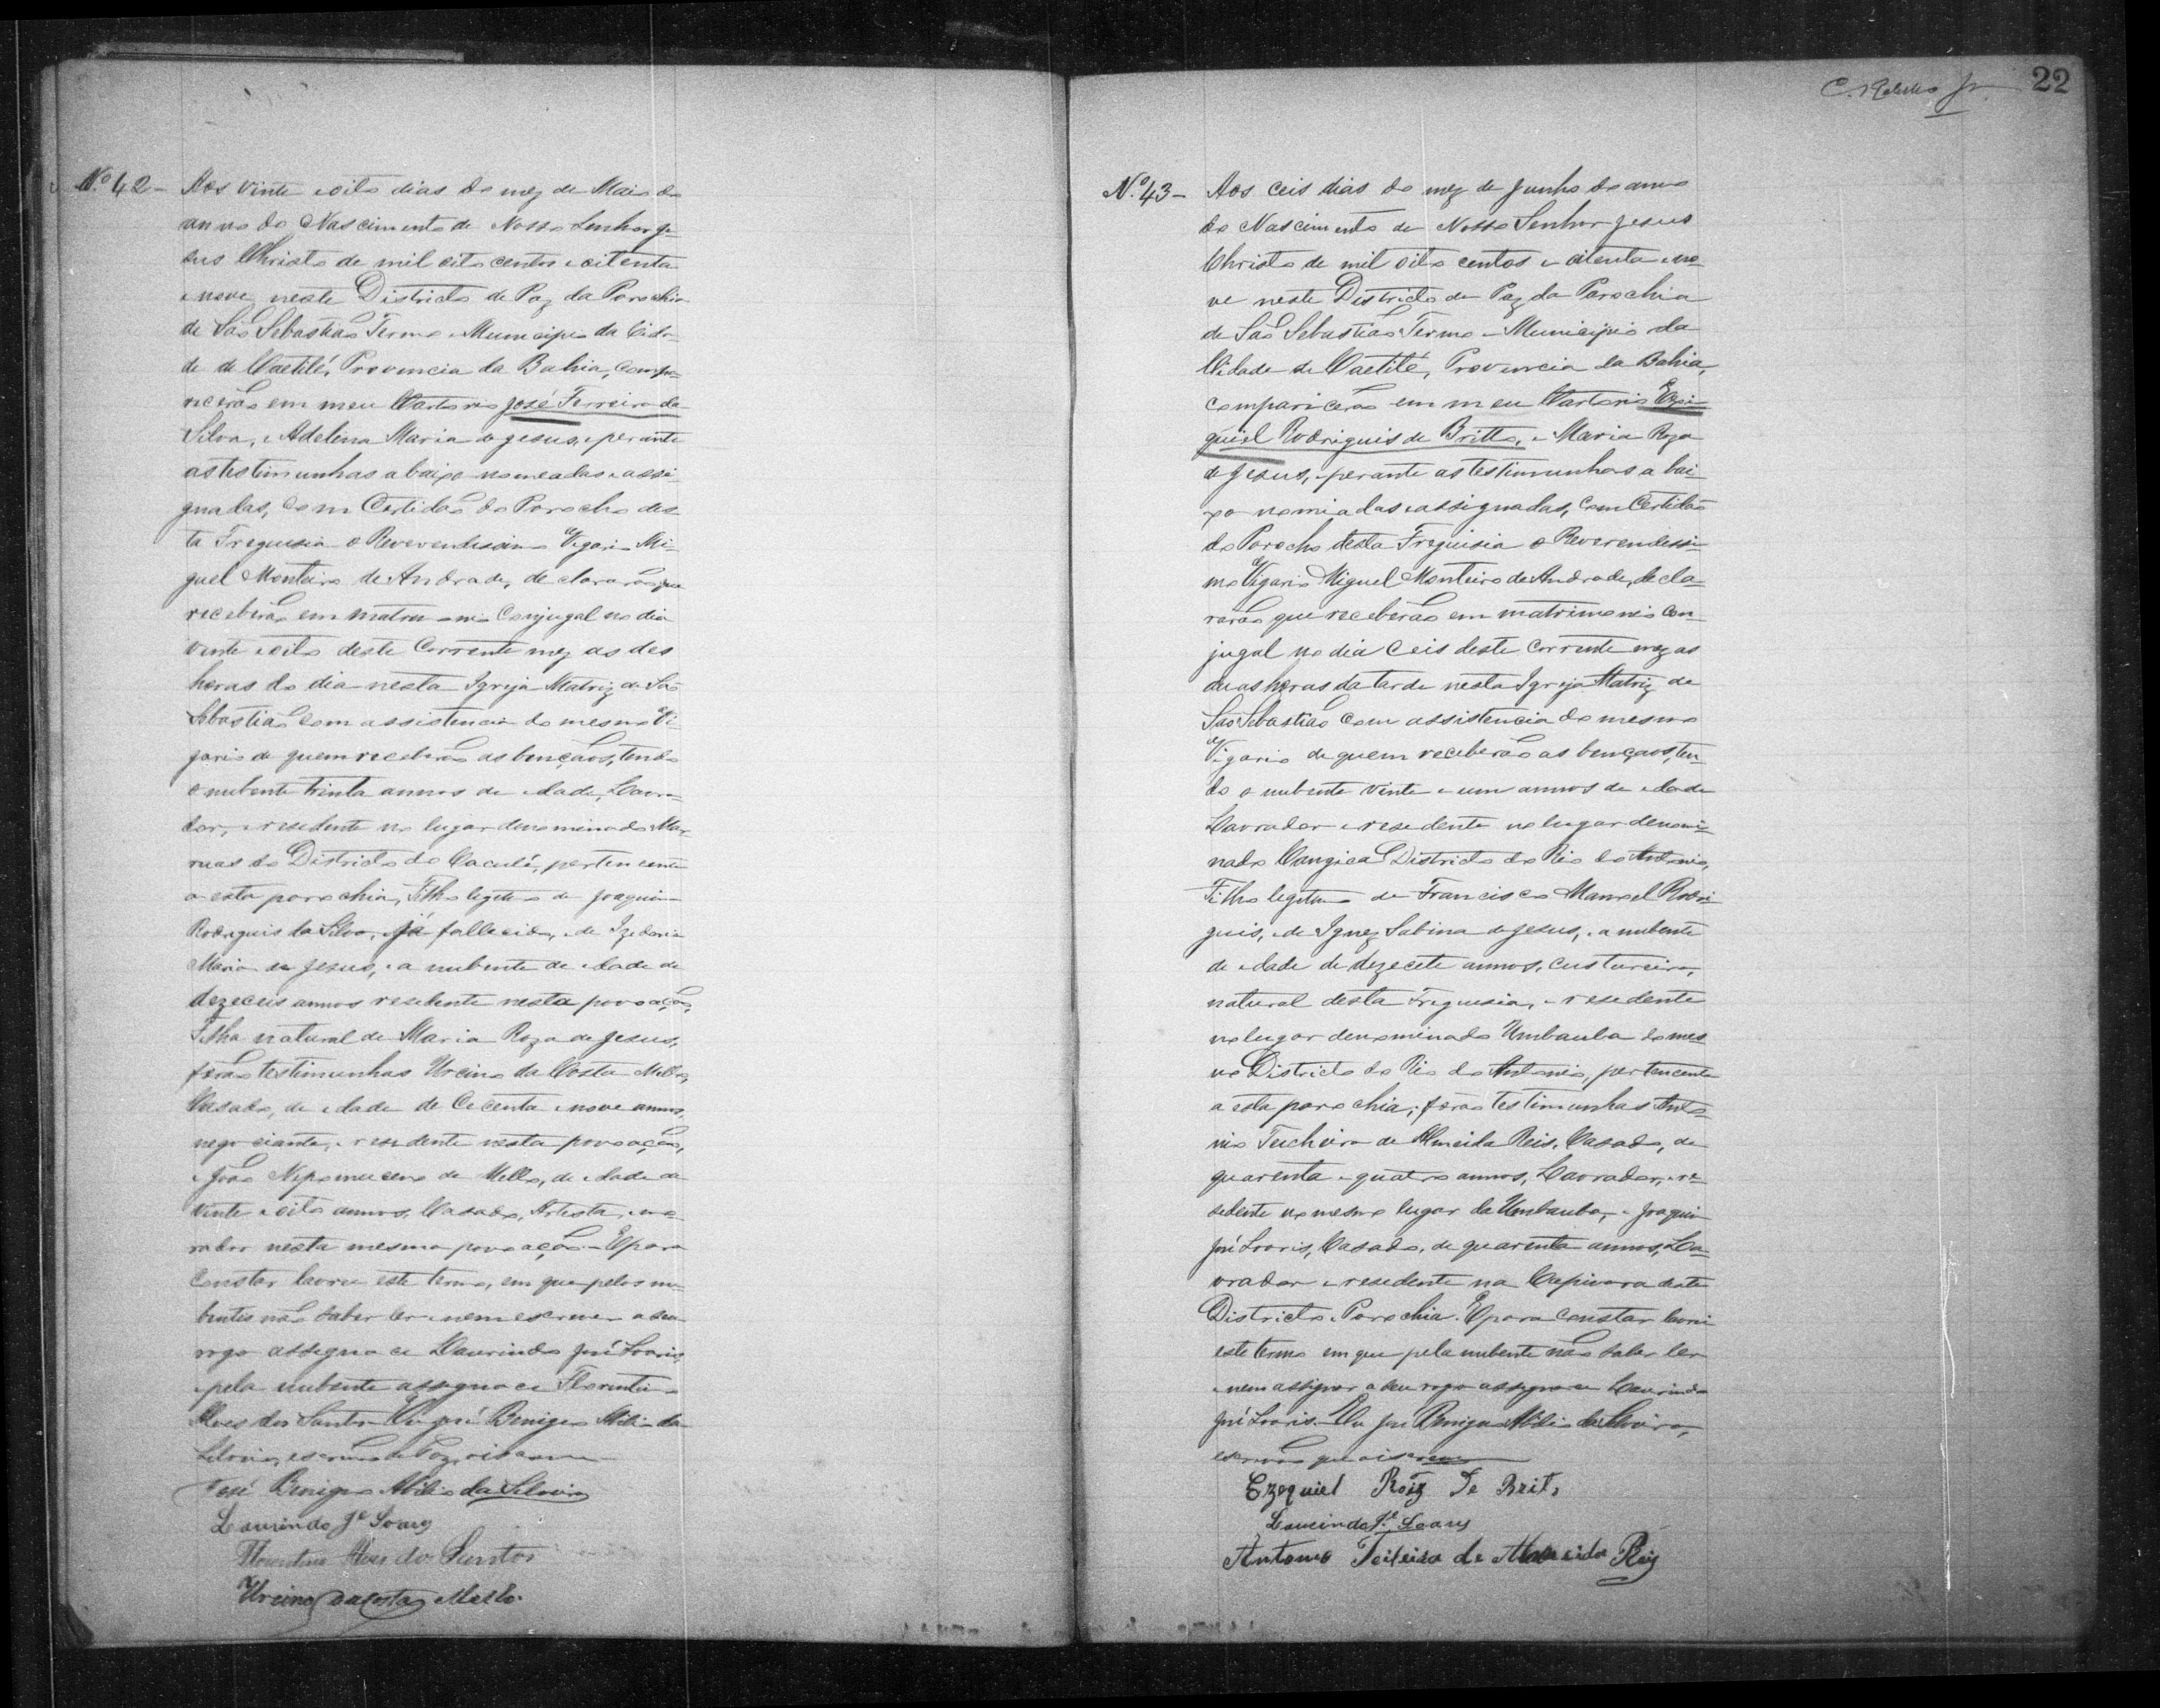 Nº 42 - Aos vinte e oito dias do mez de Maio do
anno do Nascimento de Nosso Senhor Je-
sus Christo de mil oito centos e oitenta
e nove, neste Districto de Paz da Parochia
de São Sebastião Termo e Municipio da Cida-
de de Caetité, Provincia da Bahia, compa-
recerão em meu Cartorio José Ferreira da
Silva, e Adelina Maria de Jesus, e perante
as testimunhas abaixo nomeadas e assi-
gnadas, com Certidão do Parocho des-
ta Freguesia o Reverendissimo Vigario Mi-
guel Monteiro de Andrade, declararão que
receberão em matrimonio Conjugal no dia
vinte e oito deste Corrente mez as des
horas do dia nesta Igreja Matriz de São
Sebastião com assistencia do mesmo Vi-
gario de quem receberão as bençãos, tendo
o nubente trinta annos de idade, Lavra-
dor, e resedente no lugar denominado
do Districto do Caculé, pertencente
a esta parochia, Filho legitimo de Joaquim
Rodriguis da Silva, já fallecido, e de Izedoria
Maria de Jesus, e a nubente de idade de
dezeceis annos resedente nesta povoação,
Filha natural de Maria Roza de Jesus,
forão testimunhas Urcino da Costa Mello,
Casado, de idade de Cecenta e nove annos,
negociante, e resedente nesta povoação,
e João Nepomuceno de Mello, de idade de
vinte e oito annos, Casado, Artista, mo-
rador nesta mesma povoação. E para
constar lavrei este termo, em que pelos nu-
bentes não saber ler e nem escrever a seu
rogo assegna ce Laurindo José Soaris,
e pela nubente assegna ce Florentino
Alves dos Santos Eu José Benigno Abilio da
Silveira, escrivão de Paz, o iscrevi
José Benigno Abilio da Silveira
Laurindo Je Soares
Florentino Alves dos Santos
Urcino da Costa Mello.
C. Jr. 22
Nº 43 - Aos ceis dias do mez de Junho do anno
do Nascimento de Nosso Senhor Jesus
Christo de mil oito centos e oitenta e no-
ve neste Districto de Paz da Parochia
de São Sebastião Termo e Municipio da
Cidade de Caetité, Provincia da Bahia,
compariceão em meu Cartorio Ezei-
quiel Rodriguis de Britto, e Maria Roza
de Jesus, e perante as testimunhas a bai-
xo nomiadas e assignadas, com Certidão
do Parocho desta Freguisia o Reverendissi-
mo Vigario Miguel Monteiro de Andrade, decla-
rarão que receberão em matrimonio con-
jugal no dia Ceis deste Corrente mez as
duas horas da tarde nesta Igreja Matriz de
São Sebastião com assistencia do mesmo
Vigario de quem receberão as bençaos, ten-
do o nubente vinte e um annos de idade
Lavrador e resedente no lugar denomi-
nado Cangica Districto do Rio do Antonio,
Filho legitimo de Francisco Manoel Rodri-
guis, e de Ignez Sabina de Jesus, e a nubente
de idade de dezecete annos, custureira,
natural desta Freguesia, e resedente
no lugar denominado Umbauba do mes-
mo Districto do Rio do Antonio, pertencente
a esta parochia; forão testimunhas Anto-
nio Teicheira de Almeida Reis, Casado, de
quarenta e quatro annos, Lavrador, e re-
sedente no mesmo lugar da Umbauba, e Joaquim
José Soaris, Casado, de quarenta annos, La-
vrador e resedente na Capivara deste
Districto e Parochia. E para constar lavrei
este termo em que pela nubente não saber ler
e nem assignar a seu rogo assegna ce Laurindo
José Soaris. Eu José Benigno Abilio da Silveira,
escrivão que o iscrevi
Ezequiel Roiz De Brito
Laurindo Je Soares
Antonio Teixeira de Almeida Reis